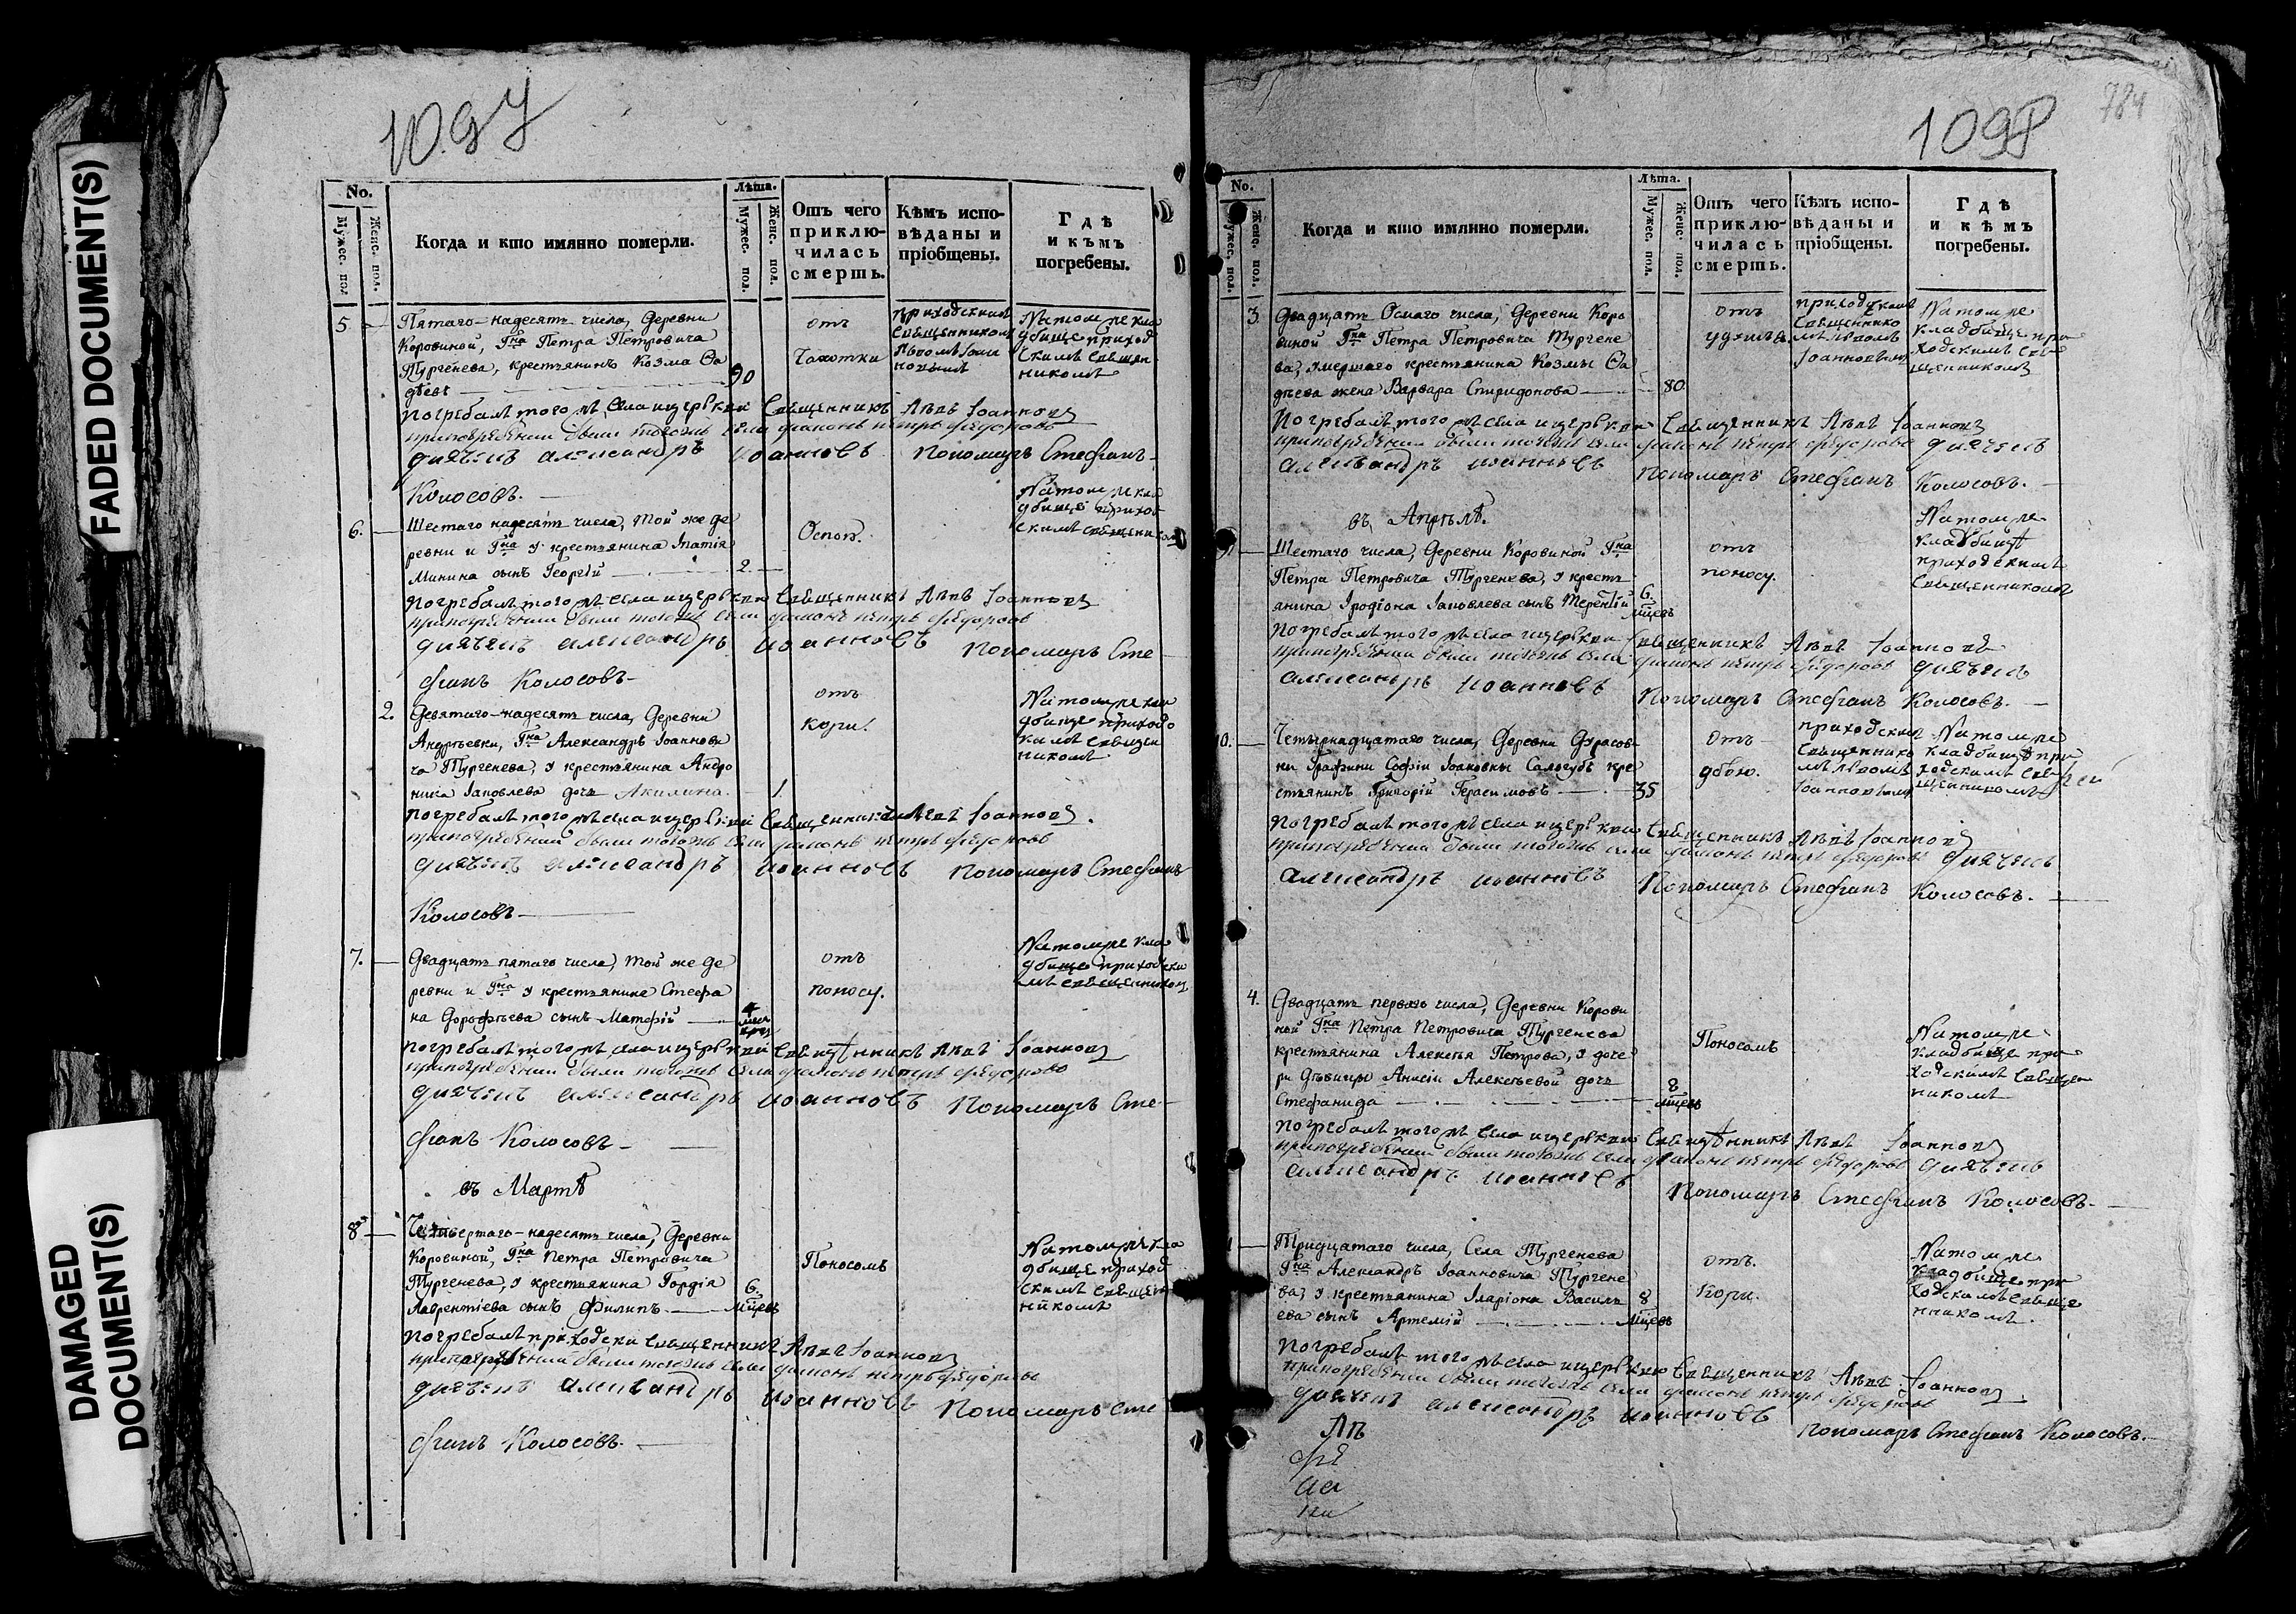 FADED DOCUMENT(S)
DAMAGED
DOCUMENT(S)
1097
No.
Мужес. пол
Женс. пол.
Когда и кто имянно померли.
Лѣта.
Мужес. пол.
Женс. пол.
Отъ чего
приклю-
чилась
смерть.
Кѣмъ испо-
вѣданы и
пріобщены.
Гдѣ
и кѣмъ
погребены.
5
Пятаго-надесять числа, Деревни
Коровиной, Гна Петра Петровича
Тургенева, крестьянинъ Козма Ѳа
дѣевъ
90
отъ
Чахотки
приходскимъ
священником
Львомъ Іоан
новымъ
На том же кла
дбище приход
скимъ священ
никомъ
Погребалъ того жъ села и церькви Священникъ Левъ Іоанновъ
при погребении были тогожъ села диаконъ петръ федоровъ
диячекъ александръ иоанновъ Пономарь Стефанъ
Колосовъ.
6.
Шестаго надесять числа, той же де
ревни и Гна у крестьянина Ипатія
Минина сынъ Георгій
2.
Оспою.
На том же кла
дбище приход
скимъ священиком
Погребалъ того жъ села и церькви Священникъ Левъ Іоанновъ
при погребении были тогожъ села диаконъ петръ федоровъ
диячекъ александръ иоанновъ Пономарь Сте
фанъ Колосовъ
2.
Девятаго-надесять числа, Деревни
Андрѣевки, Гна Александръ Іоаннови
ча Тургенева, у крестьянина Андро
ника Іаковлева дочь Акилина.
1.
отъ
кори.
На том же кла
дбище приходс
кимъ священ
никомъ
Погребалъ того жъ села и церькви Священникъ Левъ Іоанновъ.
при погребении были тогожъ села диаконъ петръ федоровъ
диячекъ александръ иоанновъ Пономарь Стефанъ
Колосовъ
7.
Двадцать пятаго числа, той же де
ревни и Гна у крестьянина Стефа
на Дорофѣева сынъ Матфій
4
отъ
поносу.
На том же кла
дбище приходски
мъ священником
Погребалъ того жъ села и церькви Священникъ Левъ Іоанновъ
при погребении были тогожъ села диаконъ петръ федоровъ
диячекъ александръ иоанновъ Пономарь Сте
фанъ Колосовъ
въ Мартѣ
8
Четвертаго-надесять числа, Деревни
Коровиной, Гна Петра Петровича
Тургенева, у крестьянина Гордія
Лаврентіева сынъ Филипъ.
6.
мцевъ
Поносомъ
На том же кла
дбище приход
скимъ священ
никомъ
Погребалъ приходски священникъ Левъ Іоанновъ
при погребении были тогожъ села диаконъ петръ федоровъ
диячекъ александръ иоанновъ Пономарь Сте
фанъ Колосовъ.
784
1098
No.
Мужес. пол.
Женс. пол.
Когда и кто имянно померли.
Лѣта.
Мужес. пол.
Женс. пол.
Отъ чего
приклю-
чилась
смерть.
Кѣмъ испо-
вѣданы и
пріобщены.
Гдѣ
и кѣмъ
погребены.
3.
Двадцать Осмаго числа, Деревни Коро
виной Гна Петра Петровича Тургене
ва, умершаго крестьянина Козмы Ѳа
дѣева жена Варвара Спиридонова
80.
отъ
удушья
приходскимъ
Священнико
мъ львомъ
Іоанновымъ
На том же
кладбище при
ходскимъ свя
щенникомъ
Погребалъ того жъ села и церькви Священникъ Левъ Іоанновъ
при погребении были тогожъ села диаконъ петръ федоровъ диячекъ
александръ иоанновъ Пономарь Стефанъ Колосовъ.
въ Апрѣлѣ.
9.
Шестаго числа, Деревни Коровиной Гна
Петра Петровича Тургенева, у кресть
янина Іродіона Іаковлева сынъ Терентій
6.
мцевъ
отъ
поносу.
На том же
кладбищѣ
приходскимъ
священникомъ
Погребалъ того жъ села и церькви Священникъ Левъ Іоанновъ
при погребении были тогожъ села диаконъ петръ федоровъ диячекъ
александръ иоанновъ Пономарь Стефанъ Колосовъ.
10.
Четырнадцатаго числа, Деревни Дурасов
ки Графини Софіи Іоановны Салогубъ кре
стьянинъ Григорій Герасимовъ
35
отъ
приходским
священнико
мъ львомъ
Іоанновымъ
На том же
кладбищѣ при
ходскимъ свя
щенникомъ
Погребалъ того жъ села и церькви Священникъ Левъ Іоанновъ
при погребении были тогожъ села диаконъ петръ федоровъ диячекъ
александръ иоанновъ Пономарь Стефанъ Колосовъ.
4.
Двадцать перваго числа, Деревни Корови
ной Гна Петра Петровича Тургенева
крестьянина Алексѣя Петрова, у доче
ри дѣвицы Анисіи Алексѣевой дочь
Стефанида
8
мцевъ
Поносомъ
На том же
кладбище при
ходскимъ священ
никомъ
Погребалъ того жъ села и церькви Священникъ Левъ Іоанновъ
при погребении были тогожъ села диаконъ петръ федоровъ диячекъ
александръ иоанновъ Пономарь Стефанъ Колосовъ.
Тридцатаго числа, Села Тургенева
Гна Александръ Іоанновича Тургене
ва, у крестьянина Іларіона Василь
ева сынъ Артемій
8
мцевъ
отъ
Кори.
На том же
кладбище при
ходскимъ свяще
нникомъ.
Погребалъ того жъ села и церькви Священникъ Левъ Іоанновъ
при погребении были тогожъ села диаконъ петръ федоровъ
диячекъ александръ иоанновъ Пономарь Стефанъ Колосовъ.